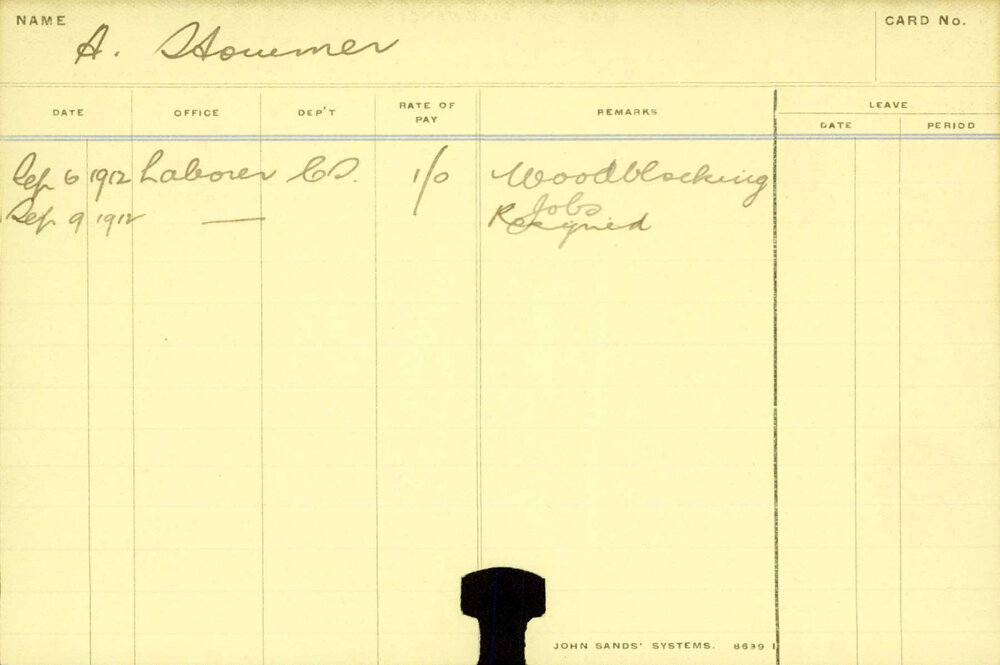 NAME
A. Stowmer
CARD No.
DATE OFFICE DEP'T RATE OF PAY REMARKS LEAVE
DATE PERIOD
Sep 6 1912 Laborer CS. 1/0 Woodblocking
Jobs
Sep 9 1912 — Resigned
JOHN SANDS' SYSTEMS. 8639